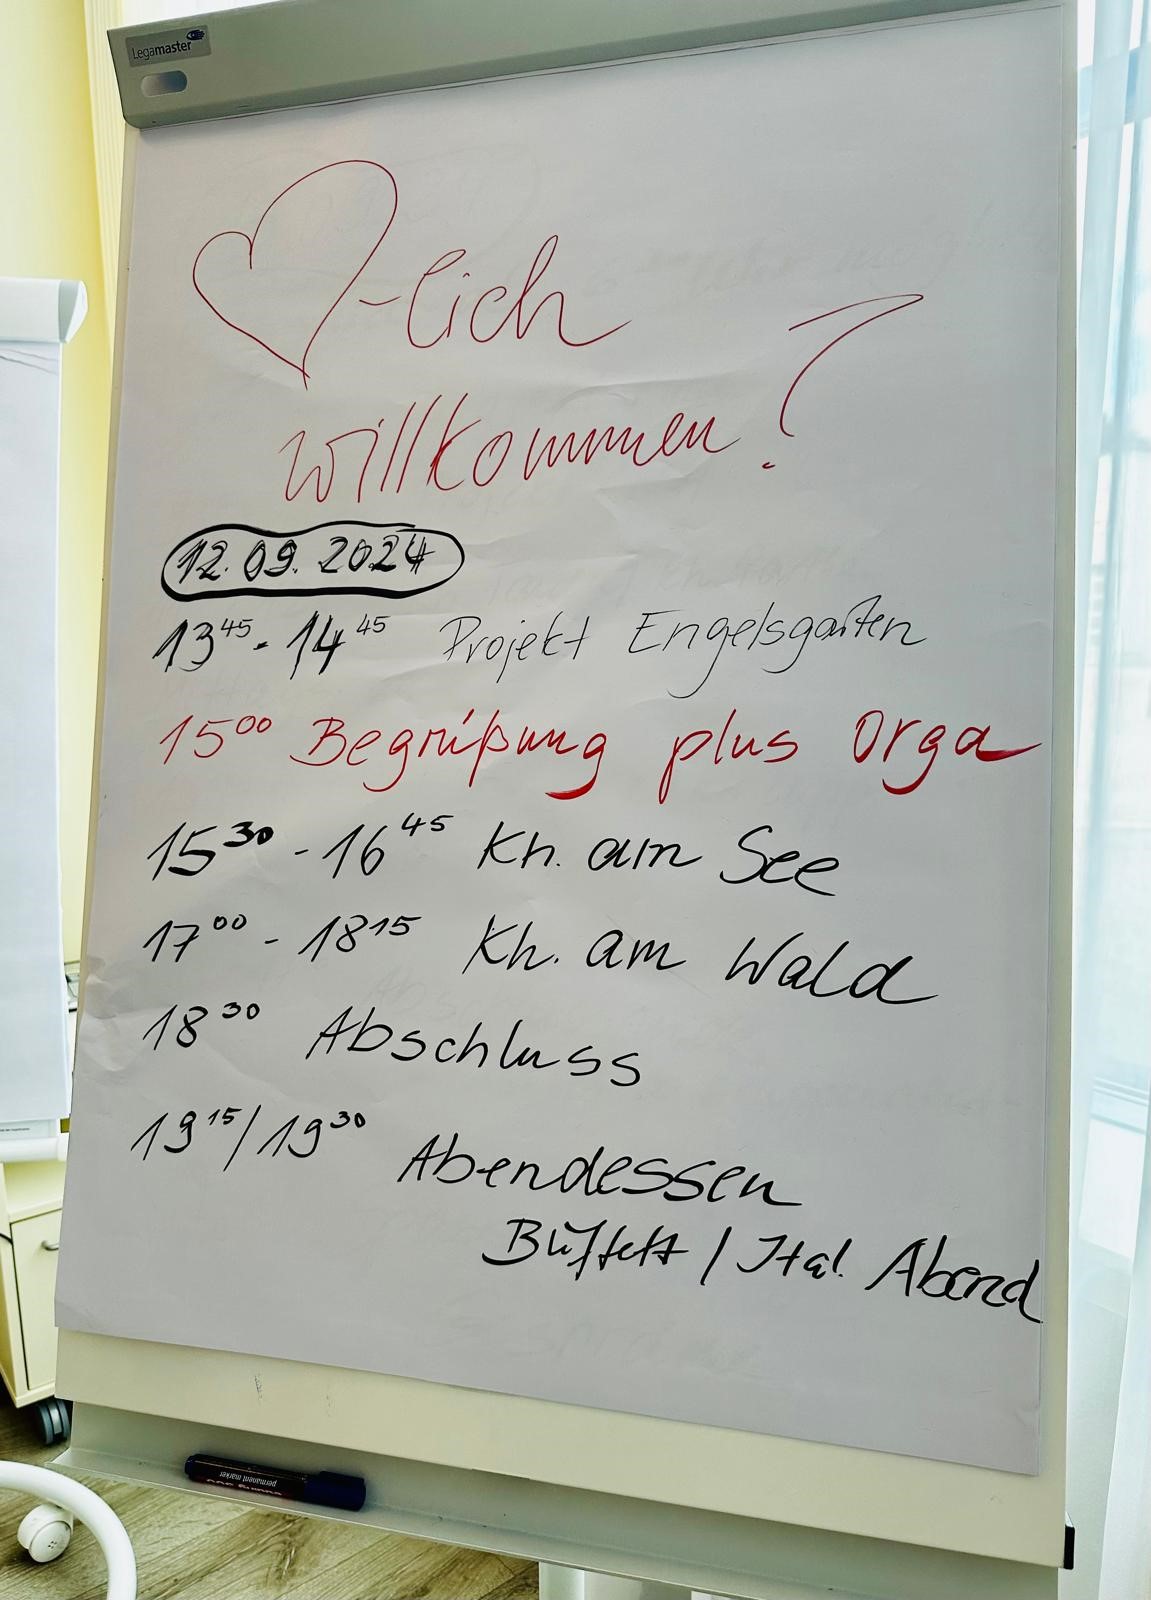 Legamaster
♡-lich
willkommen!
12.09.2024
13⁴⁵ - 14⁴⁵ Projekt Engelsgarten
15⁰⁰ Begrüßung plus Orga
15³⁰ - 16⁴⁵ Kh. am See
17⁰⁰ - 18¹⁵ Kh. am Wald
18³⁰ Abschluss
19¹⁵/19³⁰ Abendessen
Büffett / Ital. Abend
permanent marker